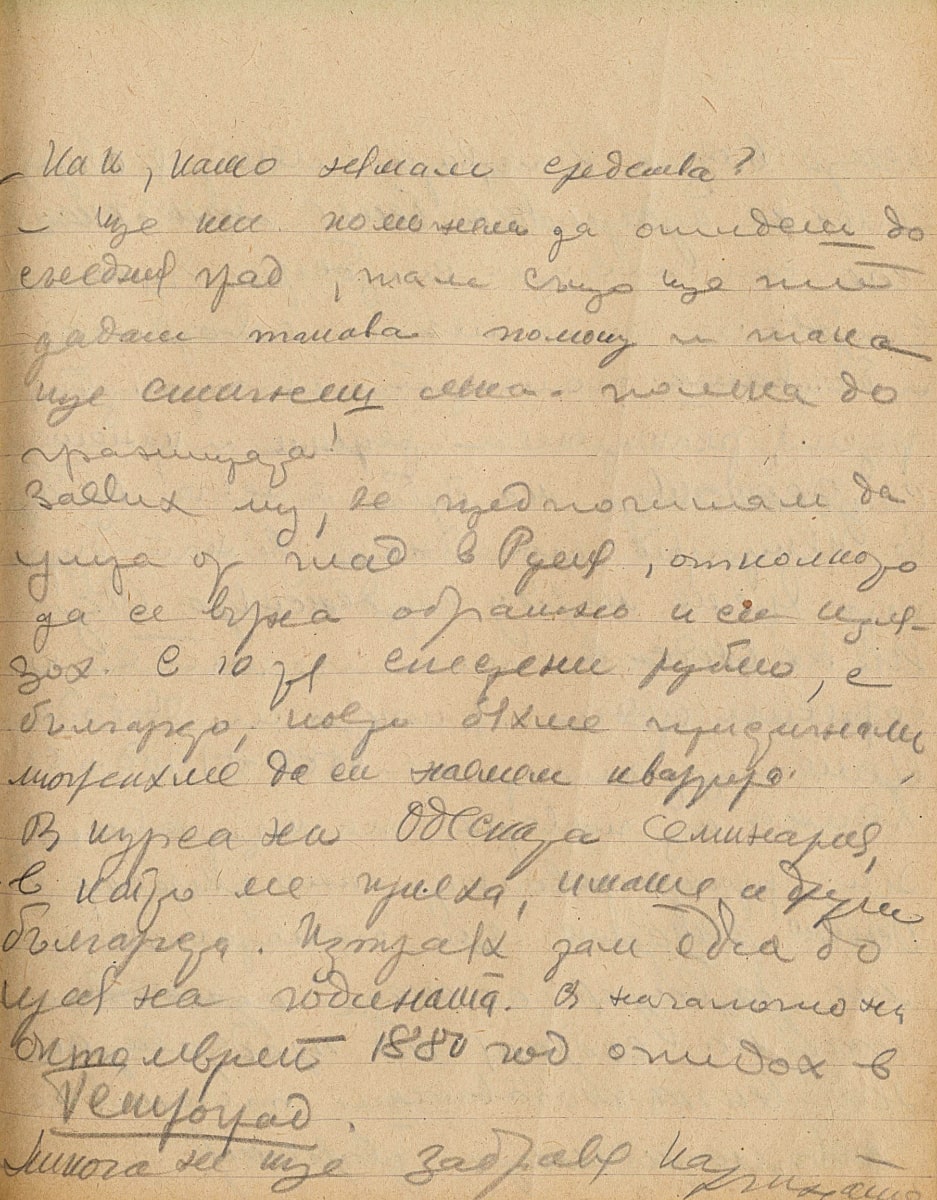 – Как, като нямам средства?
– Ще ти помогнем да отидеш до
съседния град, там също ще ти
дадат такова помощ и така
ще стигнеш лека-полека до
границата!
Заявих му, че предпочитам да
умра от глад в Русия, отколкото
да се върна обратно и си изля-
зох. С 10 спестени рубли, с
българи, които бяхме пристигнали
можехме да си наемем квартира.
В курса на Одеската семинария,
в който ме приеха, имаше и други
българи. Изтраях там едва до
края на годината. В началото на
октомврий 1880 год отидох в
Петроград.
Никога не ще забравя